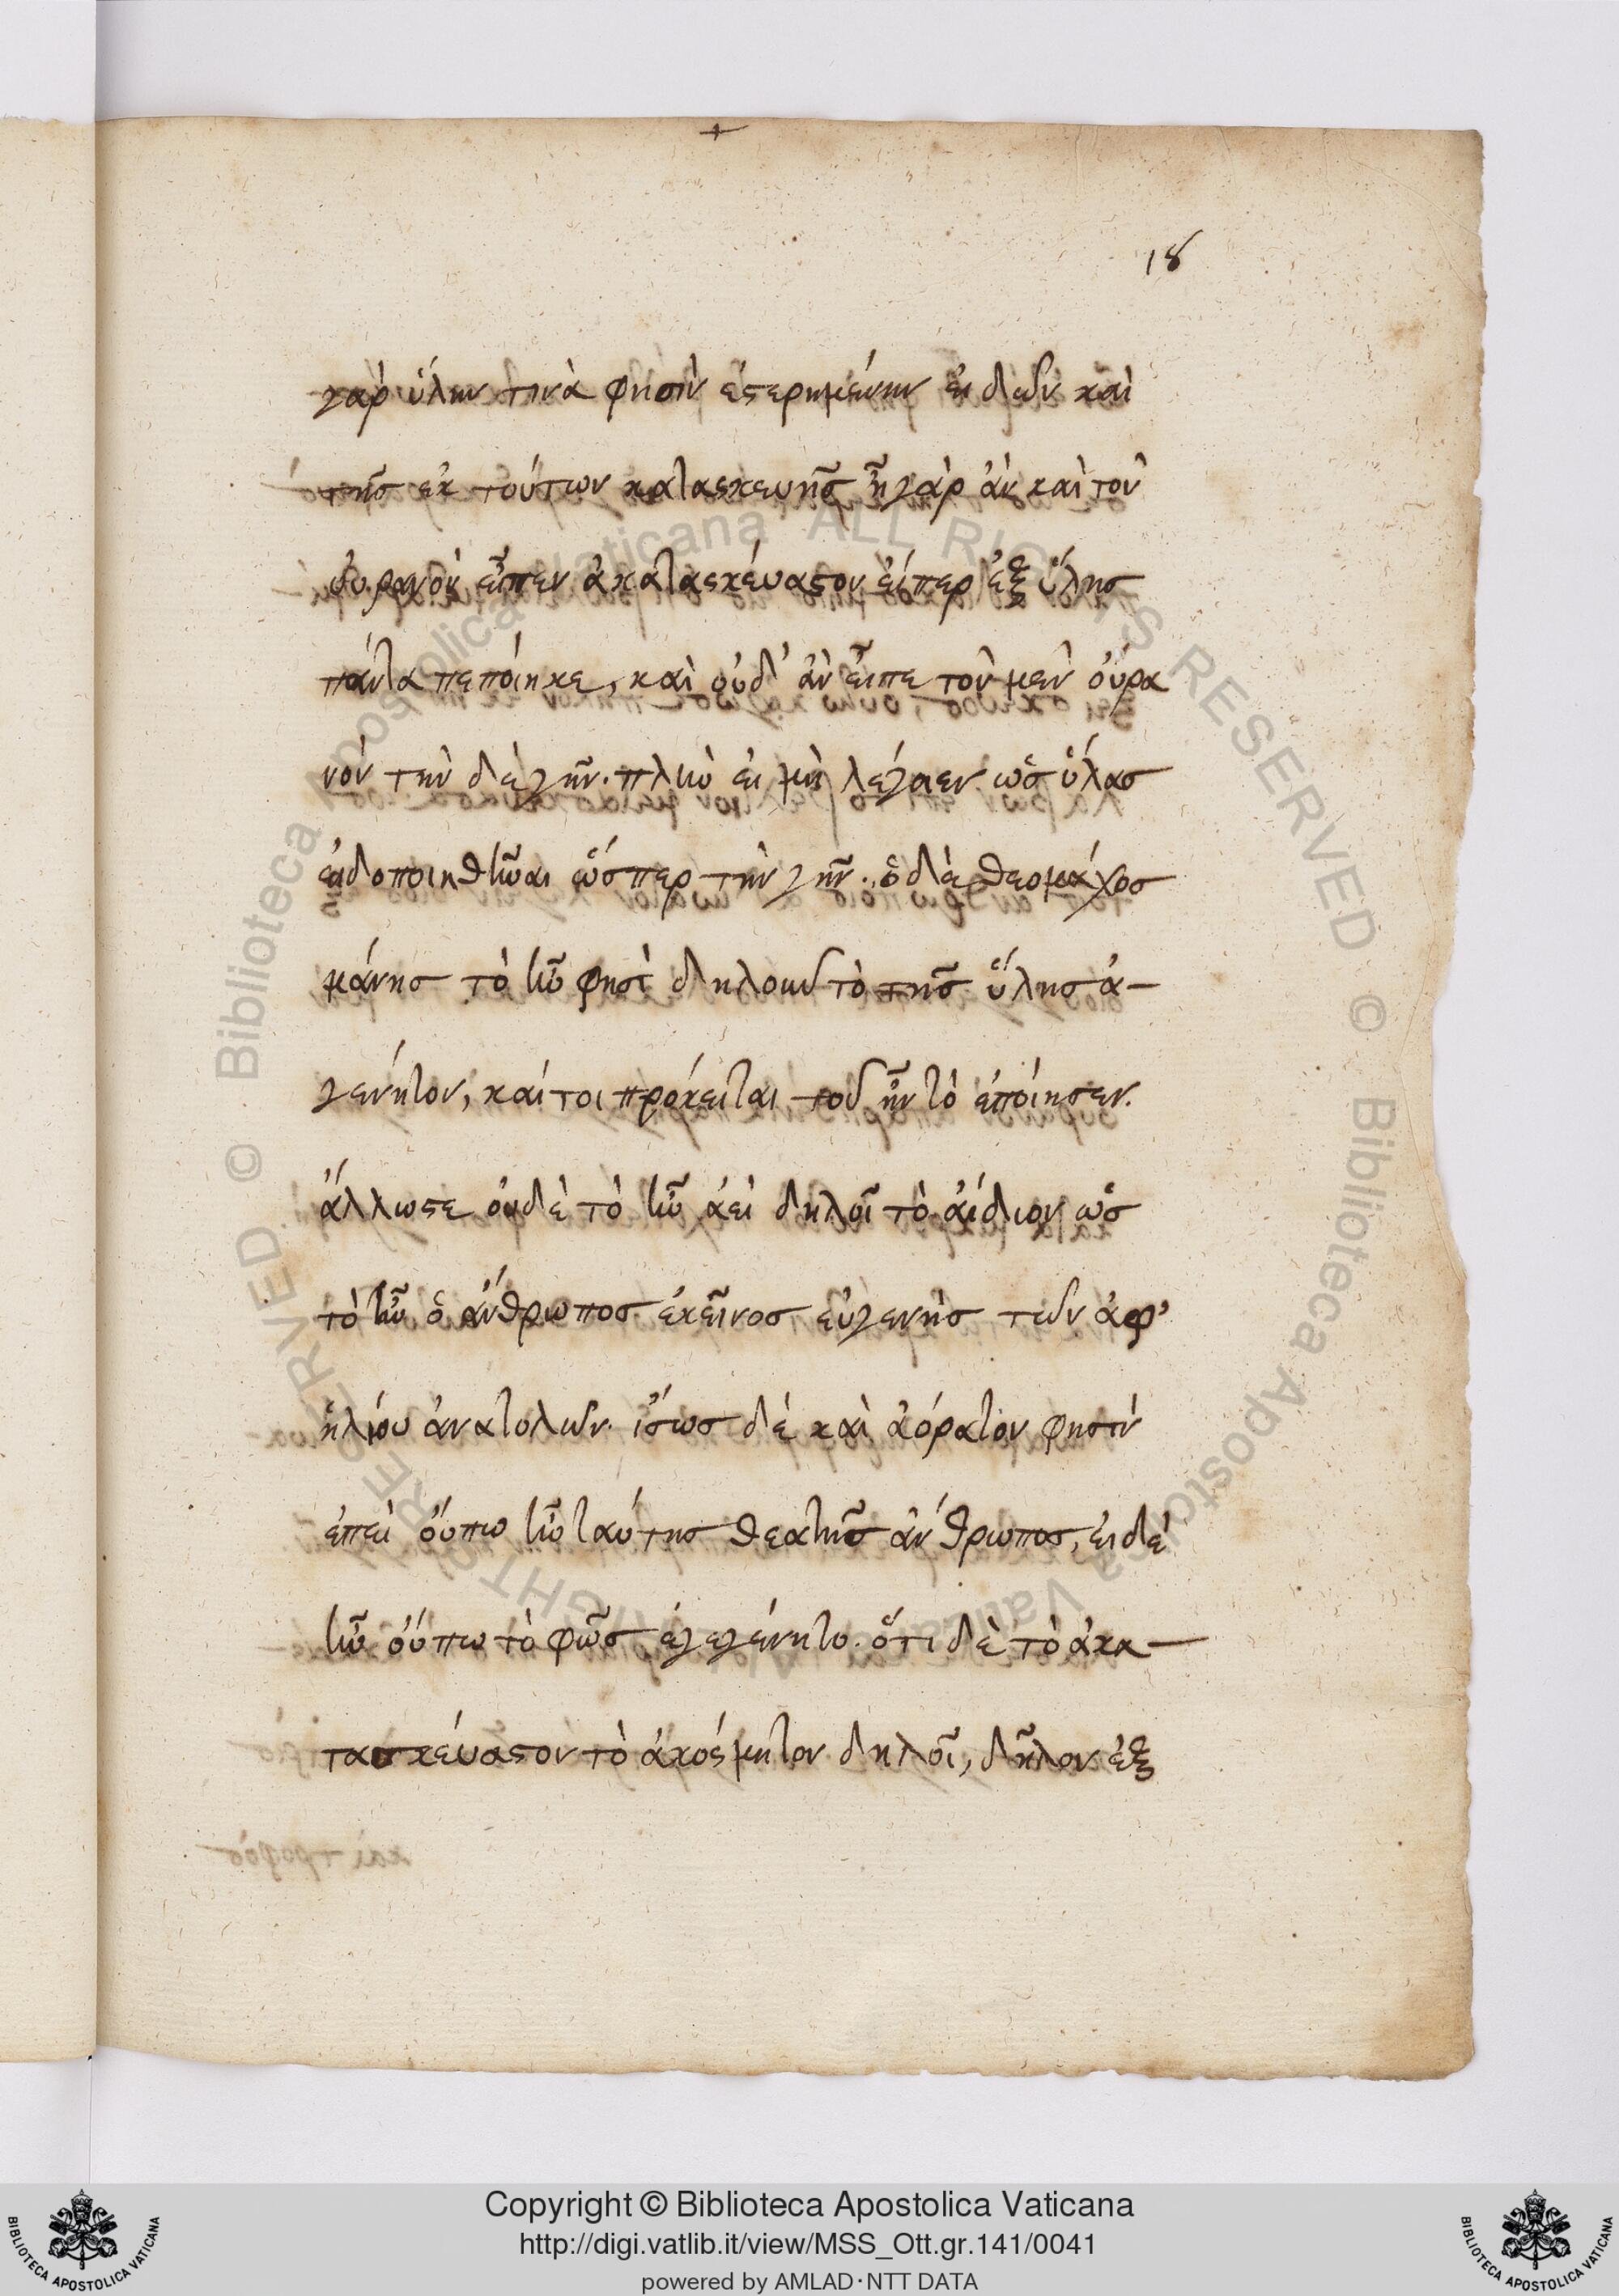 18
γὰρ ὕλην τινὰ φησὶν ἐστερημένην εἰδῶν καὶ
τῆς ἐκ τούτων κατασκευῆς ἦ γὰρ ἂν καὶ τὸν
οὐρανὸν εἶπεν ἀκατασκέυαστον ἐίπερ ἐξ ὕλης
πάντα πεποίηκε, καὶ οὐδ' ἂν εἶπε τὸν μὲν οὐρα
νόν τὴν δὲ γῆν. πλὴν εἰ μὴ λέγοιεν ὡς ὕλας
εἰδοποιηθῆναι ὥσπερ τὴν γῆν. ὁ δὲ θεομάχος
μάνης τὸ ἦν φησὶ δηλοῦν τὸ τῆς ὕλης ἀ-
γενήτον, καίτοι πρόκειται τοῦ ἦν τὸ ἐποίησεν.
ἄλλωστε οὐδὲ τὸ ἦν ἀεὶ δηλοῖ τὸ ἀίδιον ὡς
τὸ ἦν ὁ ἄνθρωπος ἐκεῖνος εὐγενὴς τῶν ἀφ'
ἡλίου ἀνατολῶν. ἴσως δὲ καὶ ἀόρατον φησὶν
ἐπεὶ οὔπω ἦν ταύτης θεατὴς ἄνθρωπος, εἰ δὲ
ἦν οὔπω τὸ φῶς ἐγεγένητο. ὅτι δὲ τὸ ἀκα-
τασκέυαστον τὸ ἀκόσμητον δηλοῖ, δῆλον ἐξ
Copyright © Biblioteca Apostolica Vaticana
http://digi.vatlib.it/view/MSS_Ott.gr.141/0041
powered by AMLAD·NTT DATA
BIBLIOTECA APOSTOLICA VATICANA
BIBLIOTECA APOSTOLICA VATICANA